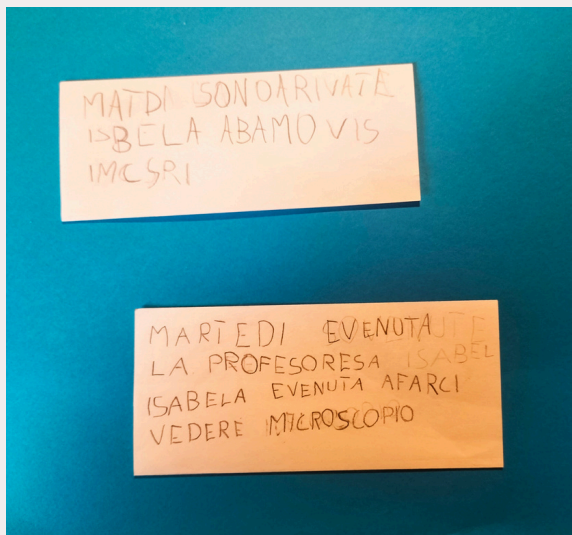 MATDI SONOARIVATE
ISBELA ABAMO VIS
IMCSRI
MARTEDI EVENUTA
LA PROFESORESA ISABEL
ISABELA EVENUTA AFARCI
VEDERE MICROSCOPIO